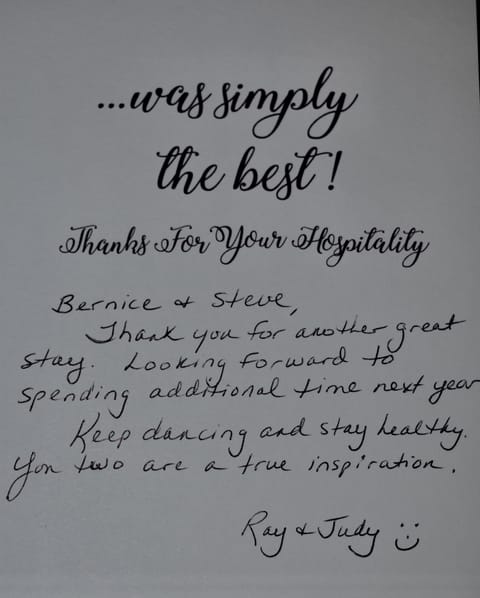 ...was simply
the best!
Thanks For Your Hospitality
Bernice & Steve,
Thank you for another great
stay. Looking forward to
spending additional time next year
Keep dancing and stay healthy.
You two are a true inspiration.
Ray & Judy